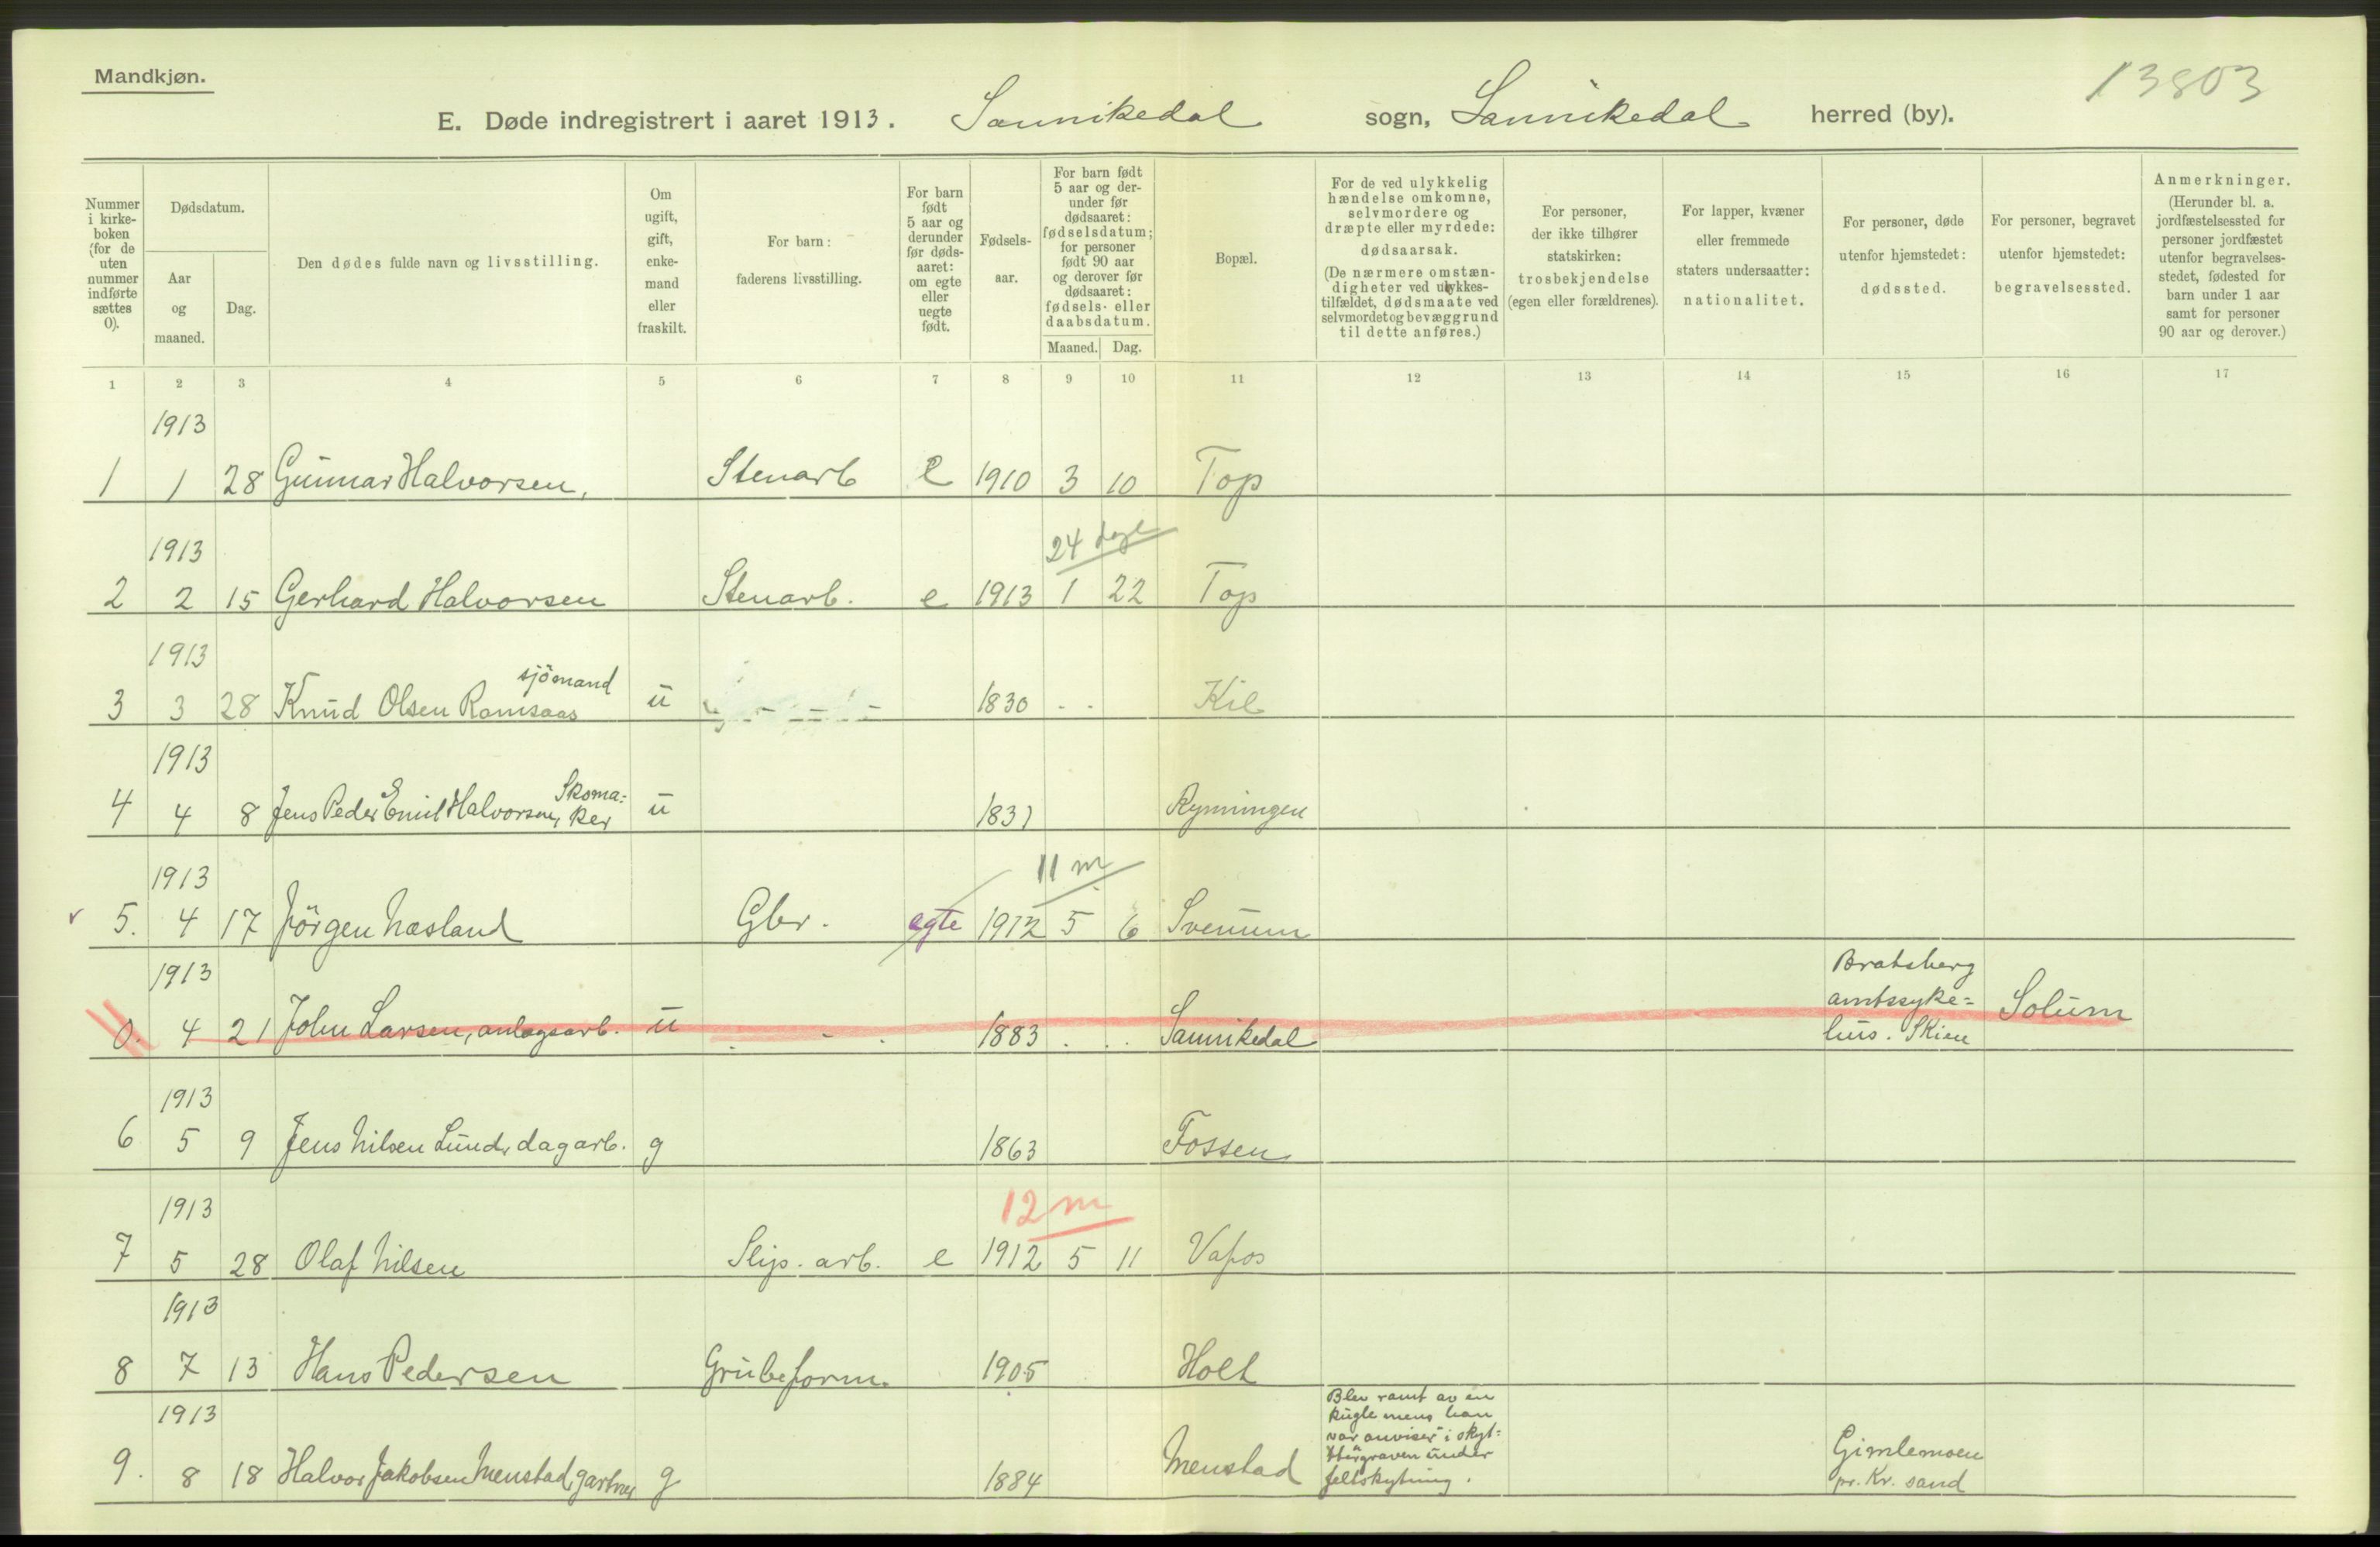 Mandkjøn.
13803
E. Døde indregistrert i aaret 1913. Sannikedal sogn, Sannikedal herred (by).
Nummer i kirkeboken (for de uten nummer indførte sættes 0).
Dødsdatum.
Aar og maaned.
Dag.
Den dødes fulde navn og livsstilling.
Om ugift, gift, enkemand eller fraskilt.
For barn: faderens livsstilling.
For barn født 5 aar og derunder før dødsaaret: om egte eller uegte født.
Fødselsaar.
For barn født 5 aar og derunder før dødsaaret: fødselsdatum; for personer født 90 aar og derover før dødsaaret: fødsels- eller daabsdatum.
Maaned. Dag.
Bopæl.
For de ved ulykkelig hændelse omkomne, selvmordere og dræpte eller myrdede: dødsaarsak. (De nærmere omstændigheter ved ulykkestilfældet, dødsmaate ved selvmordet og bevæggrund til dette anføres.)
For personer, der ikke tilhører statskirken: trosbekjendelse (egen eller forældrenes).
For lapper, kvæner eller fremmede staters undersaatter: nationalitet.
For personer, døde utenfor hjemstedet: dødssted.
For personer, begravet utenfor hjemstedet: begravelsessted.
Anmerkninger. (Herunder bl. a. jordfæstelsessted for personer jordfæstet utenfor begravelsesstedet, fødested for barn under 1 aar samt for personer 90 aar og derover.)
1 2 3 4 5 6 7 8 9 10 11 12 13 14 15 16 17
1913
1 1 28 Gunnar Halvorsen, Stenarb e 1910 3 10 Top
1913 24 dage
2 2 15 Gerhard Halvorsen Stenarb. e 1913 1 22 Top
1913
sjömand
3 3 28 Knud Olsen Ramsaas u 1830 Kil
1913
Skoma=
4 4 8 Jens Peder Emil Halvorsen, ker u 1831 Rynningen
1913 11 m
5. 4 17 Jörgen Næsland Gbr. egte 1912 5 6 Svenum
1913 Bratsberg
amtssyke= Solum
0. 4 21 John Larsen, anlægsarb. u 1883 Sannikedal hus. Skien
1913
6 5 9 Jens Nilsen Lund, dagarb. g 1863 Fossen
1913 12 m
7 5 28 Olaf Nilsen Slip. arb. e 1912 5 11 Vafos
1913
8 7 13 Hans Pedersen Grubeform. 1905 Holt
Blev ramt av en
1913 kugle mens han
var anviser i skyt=
tergraven under Gimlemoen
9. 8 18 Halvor Jakobsen Menstad, gartner g 1884 Menstad feltskytning. pr. Kr. sand